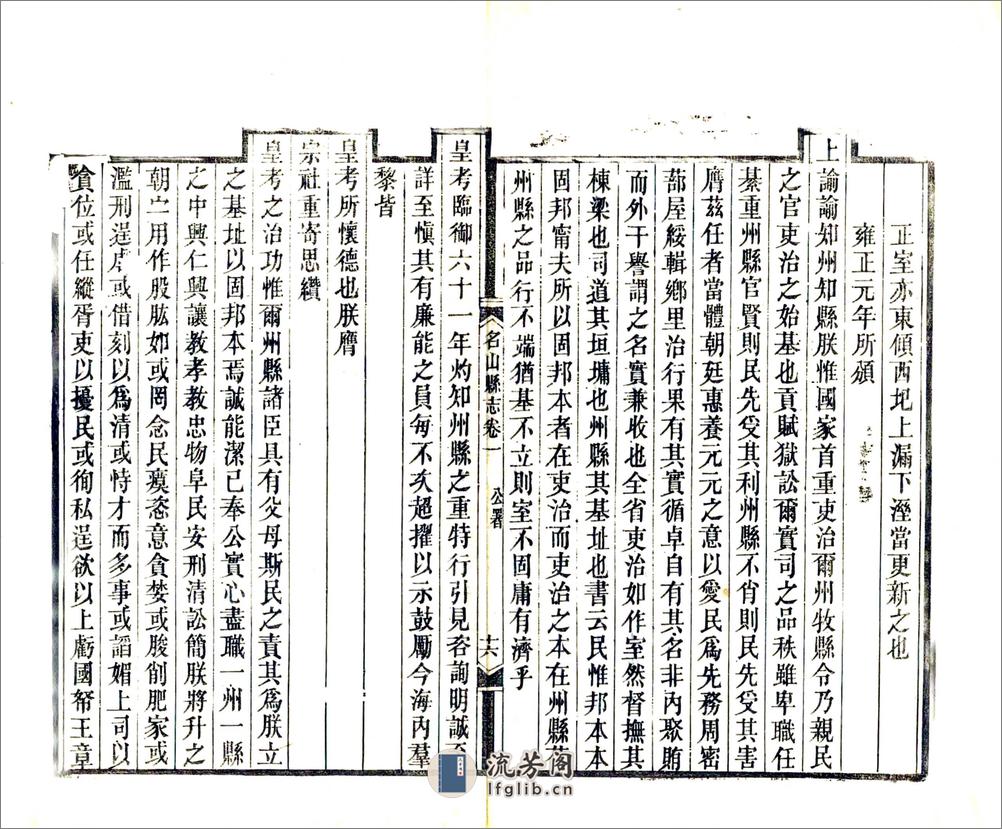 正室亦東傾西圮上漏下溼當更新之也
雍正元年所頒
上諭諭知州知縣朕惟國家首重吏治爾州牧縣令乃親民
之官吏治之始基也貢賦獄訟爾實司之品秩雖卑職任
綦重州縣官賢則民先受其利州縣不肖則民先受其害
膺茲任者當體朝廷惠養元元之意以愛民爲先務周密
蔀屋綏輯鄉里治行果有其實循卓自有其名非内聚賄
而外干譽謂之名實兼收也全省吏治如作室然督撫其
棟梁也司道其垣墉也州縣其基址也書云民惟邦本本
固邦甯夫所以固邦本者在吏治而吏治之本在州縣
州縣之品行不端猶基不立則室不固庸有濟乎
名山縣志卷一 公署 十六
皇考臨御六十一年灼知州縣之重特行引見咨詢明誠至
詳至慎其有廉能之員每不次超擢以示鼓勵今海内羣
黎皆
皇考所懷德也朕膺
宗社重寄思纘
皇考之治功惟爾州縣諸臣具有父母斯民之責其爲朕立
之基址以固邦本焉誠能潔已奉公實心盡職一州一縣
之中興仁興讓教孝教忠物阜民安刑清訟簡朕將升之
朝宁用作股肱如或罔念民瘼恣意貪婪或朘削肥家或
濫刑逞虐或借刻以爲清或恃才而多事或謟媚上司以
貪位或任縱胥吏以擾民或徇私逞欲以上虧國帑王章
流芳阁
lfglib.cn